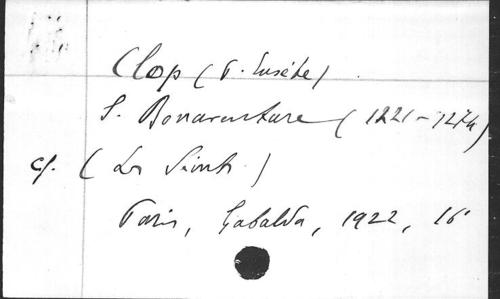 Clop (P. Eusèbe)
S. Bonaventure (1221-1274)
cf. (Les Saints)
Paris, Gabalda, 1922, 16°